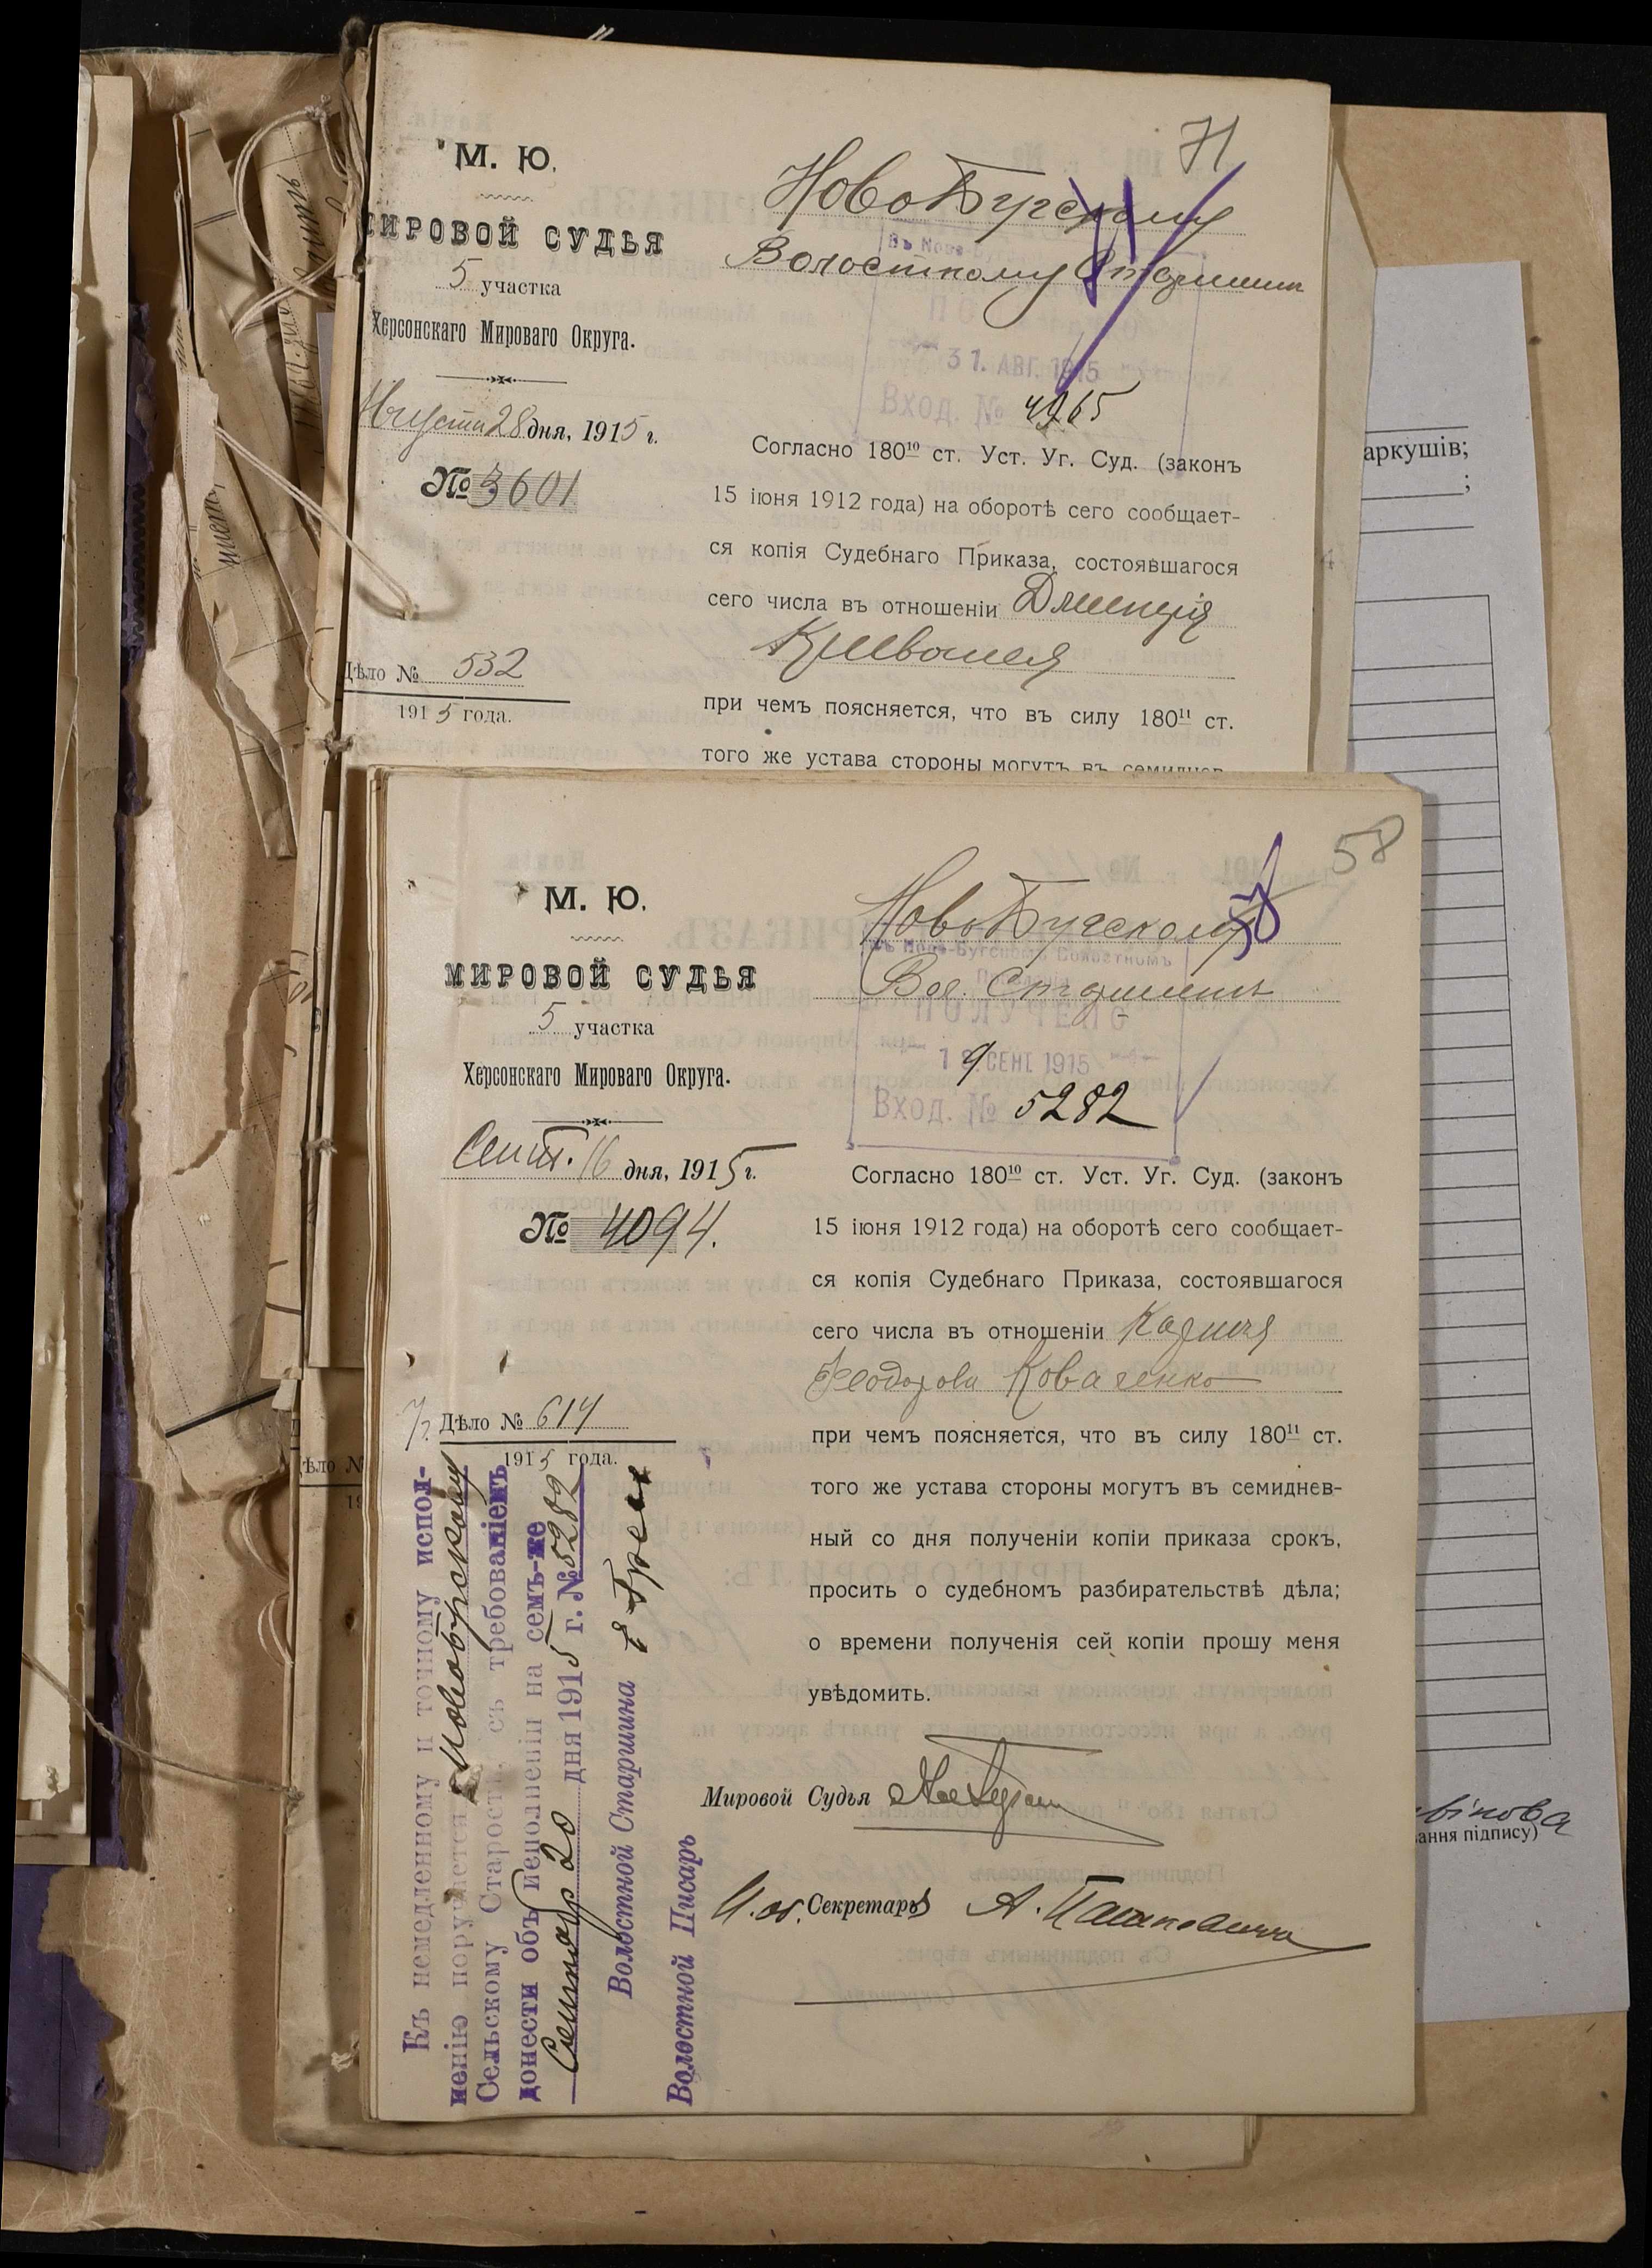 71
М. Ю.
МИРОВОЙ СУДЬЯ
5 участка
Херсонскаго Мироваго Округа.
Августа 28 дня, 1915 г.
№ 3601
Дѣло № 532
1915 года.
НовоБугскому
Волостному Старшинѣ
31. АВГ. 1915
Вход. № 4965
Согласно 180¹⁰ ст. Уст. Уг. Суд. (законъ
15 іюня 1912 года) на оборотѣ сего сообщает-
ся копія Судебнаго Приказа, состоявшагося
сего числа въ отношеніи Дмитрія
Кривошея
при чемъ поясняется, что въ силу 180¹¹ ст.
того же устава стороны могутъ въ семиднев-
58
М. Ю.
МИРОВОЙ СУДЬЯ
5 участка
Херсонскаго Мироваго Округа.
Сент. 16 дня, 1915 г.
№ 4094.
Дѣло № 614
1915 года.
НовоБугскому
Вол. Старшинѣ
Въ Ново-Бугскомъ Волостномъ
ПОЛУЧЕНО
19 СЕНТ 1915
Вход. № 5282
Согласно 180¹⁰ ст. Уст. Уг. Суд. (законъ
15 іюня 1912 года) на оборотѣ сего сообщает-
ся копія Судебнаго Приказа, состоявшагося
сего числа въ отношеніи
Феодорова Коваленко
при чемъ поясняется, что въ силу 180¹¹ ст.
того же устава стороны могутъ въ семиднев-
ный со дня полученіи копіи приказа срокъ,
просить о судебномъ разбирательствѣ дѣла;
о времени полученія сей копіи прошу меня
увѣдомить.
Мировой Судья
И. об. Секретаря А.
Къ немедленному и точному испол-
ненію поручается
Сельскому Старостѣ, съ требованіемъ
донести объ исполненіи на семъ-же
Сентября 20 дня 1915 г. № 5282
Волостной Старшина
Волостной Писарь
аркушів;
;
ання підпису)